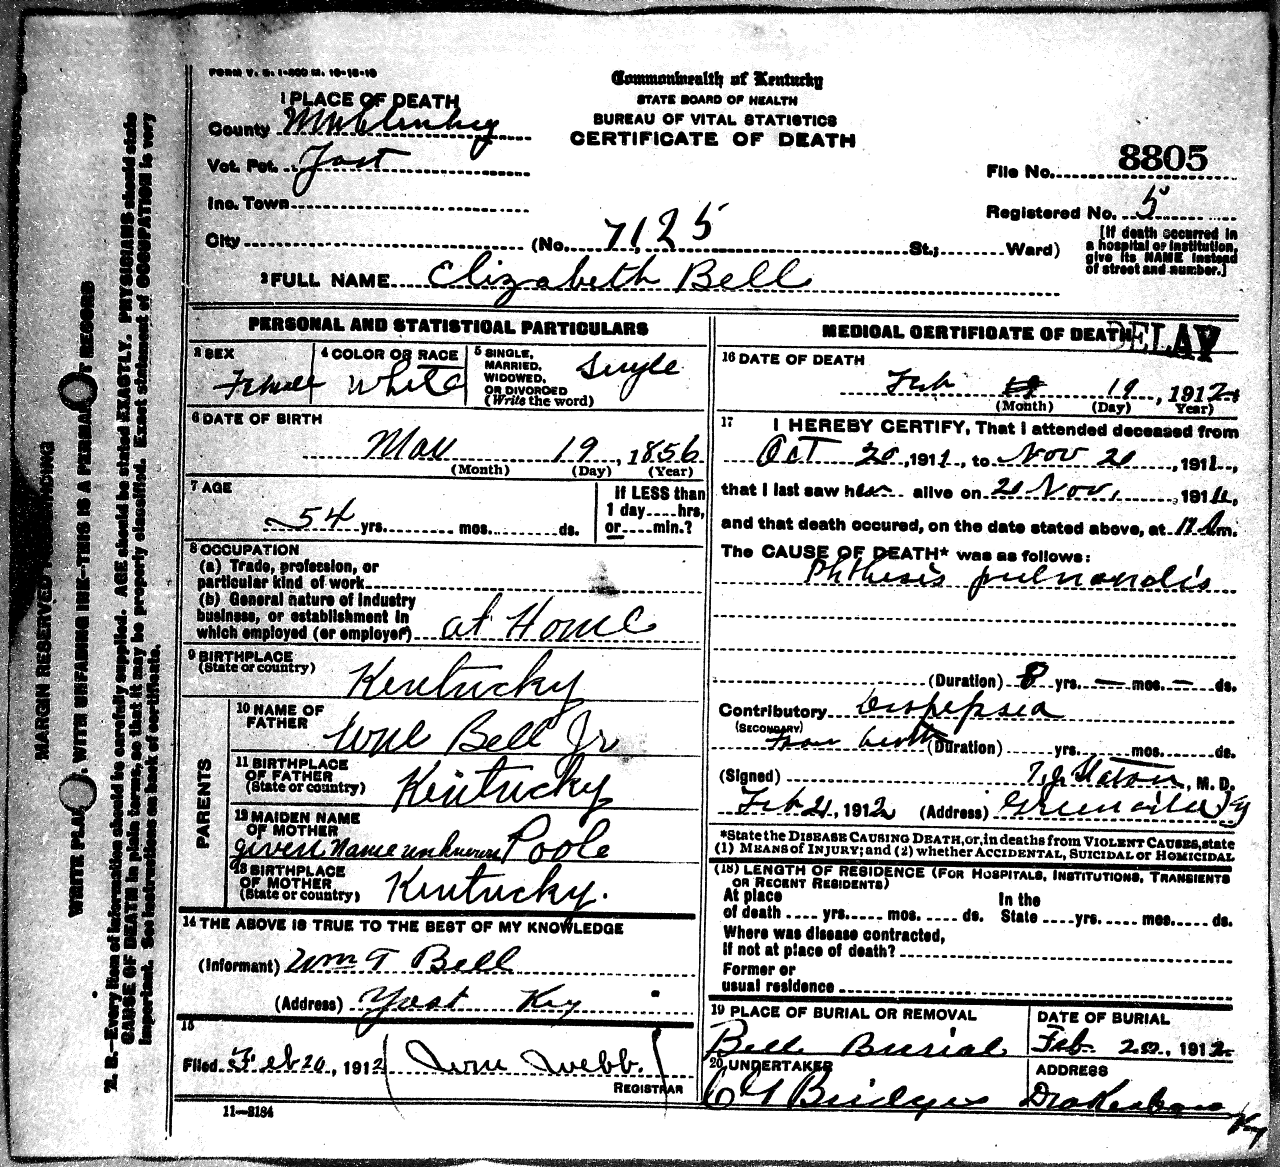 FORM V. S. 1-
Commonwealth of Kentucky
STATE BOARD OF HEALTH
BUREAU OF VITAL STATISTICS
CERTIFICATE OF DEATH
1 PLACE OF DEATH
County Muhlenberg
Vot. Pct. Yost
Inc. Town
City (No. 7125 St.; Ward)
File No. 8805
Registered No. 5
[If death occurred in
a hospital or institution,
give its NAME instead
of street and number.]
2 FULL NAME Elizabeth Bell
PERSONAL AND STATISTICAL PARTICULARS
3 SEX
Female
4 COLOR OR RACE
White
5 SINGLE,
MARRIED,
WIDOWED,
OR DIVORCED
(Write the word)
Single
6 DATE OF BIRTH
19, 1856
(Month) (Day) (Year)
7 AGE
54 yrs. mos. ds.
If LESS than
1 day hrs,
or min.?
8 OCCUPATION
(a) Trade, profession, or
particular kind of work
(b) General nature of industry
business, or establishment in
which employed (or employer) at Home
9 BIRTHPLACE
(State or country)
Kentucky
PARENTS
10 NAME OF
FATHER
Wm Bell Jr
11 BIRTHPLACE
OF FATHER
(State or country)
Kentucky
12 MAIDEN NAME
OF MOTHER
given Name unknown Poole
13 BIRTHPLACE
OF MOTHER
(State or country)
Kentucky.
14 THE ABOVE IS TRUE TO THE BEST OF MY KNOWLEDGE
(Informant) Wm T Bell
(Address) Yost Ky
15
Filed Feb 20, 1912 Wm Webb.
REGISTRAR
11-3184
MEDICAL CERTIFICATE OF DEATH
DELAY
16 DATE OF DEATH
Feb 19, 1912
(Month) (Day) Year)
17 I HEREBY CERTIFY, That I attended deceased from
Oct 20, 1911, to Nov 20, 1911,
that I last saw her alive on 20 Nov, 1911,
and that death occured, on the date stated above, at m.
The CAUSE OF DEATH* was as follows:
Phthesis pulmonalis
(Duration) 8 yrs. — mos. — ds.
Contributory Dispepsia
(SECONDARY)
from birth (Duration) yrs. mos. ds.
(Signed) T. J. Slaton, M. D.
Feb 21, 1912 (Address) Greenville Ky
*State the DISEASE CAUSING DEATH, or, in deaths from VIOLENT CAUSES, state
(1) MEANS of INJURY; and (2) whether ACCIDENTAL, SUICIDAL or HOMICIDAL
(18) LENGTH OF RESIDENCE (FOR HOSPITALS, INSTITUTIONS, TRANSIENTS
OR RECENT RESIDENTS)
At place
of death yrs. mos. ds.
In the
State yrs. mos. ds.
Where was disease contracted,
if not at place of death?
Former or
usual residence
19 PLACE OF BURIAL OR REMOVAL
Bell Burial
DATE OF BURIAL
Feb 20, 1912
20 UNDERTAKER
Bridges
ADDRESS
Drakesboro
Ky
MARGIN RESERVED FOR BINDING
WRITE PLAINLY, WITH UNFADING INK—THIS IS A PERMANENT RECORD
N. B.—Every item of information should be carefully supplied. AGE should be stated EXACTLY. PHYSICIANS should state
CAUSE OF DEATH in plain terms, so that it may be properly classified. Exact statement of OCCUPATION is very
important. See instructions on back of certificate.